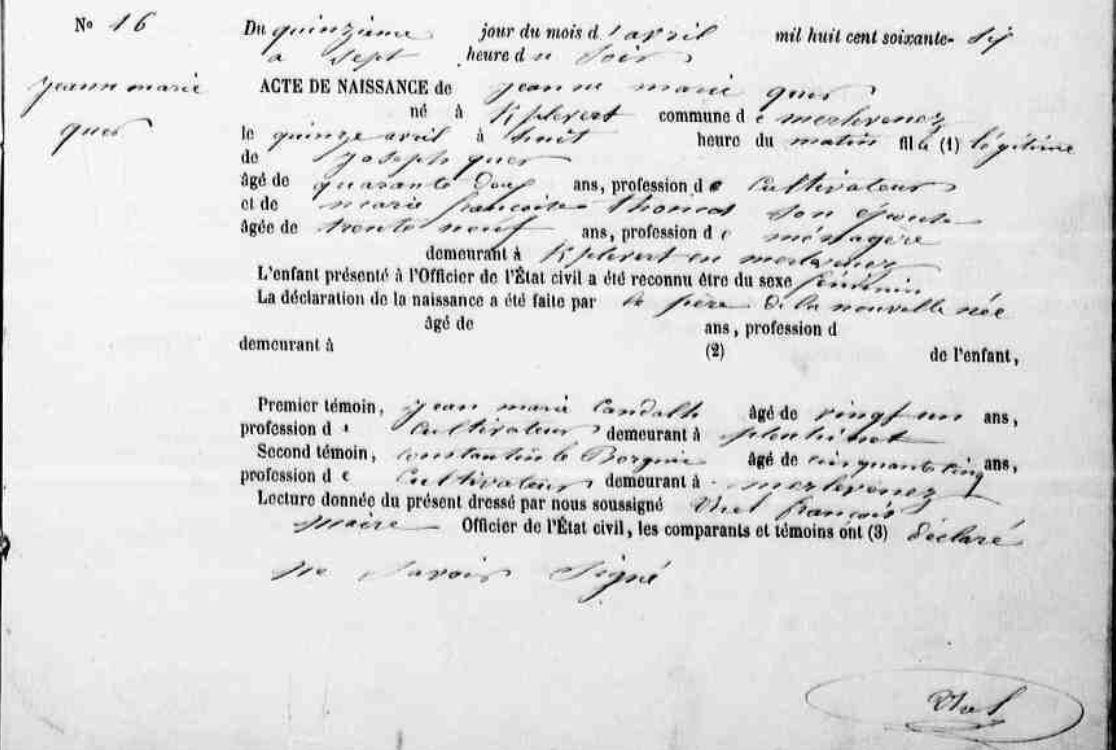 No 16
Du quinzième jour du mois d'avril mil huit cent soixante-six
a sept heure du Soir
jeann marie
quer
ACTE DE NAISSANCE de jeanne marie quer
né à K plevert commune de merlevenez
le quinze avril à huit heure du matin fille (1) légitime
de Joseph quer
âgé de quarante deux ans, profession de Cultivateur
et de marie françoise Thomas son épouse
âgée de trente neuf ans, profession de ménagère
demeurant à K plevert en merlevenez
L'enfant présenté à l'Officier de l'État civil a été reconnu être du sexe féminin
La déclaration de la naissance a été faite par le père de la nouvelle née
âgé de ans, profession d
demeurant à (2) de l'enfant,
Premier témoin, jean marie âgé de vingt un ans,
profession de Cultivateur demeurant à
Second témoin, constantin le âgé de cinquante cinq ans,
profession de Cultivateur demeurant à merlevenez
Lecture donnée du présent dressé par nous soussigné françois
maire Officier de l'État civil, les comparants et témoins ont (3) déclaré
ne Savoir Signé